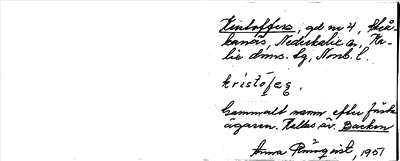 Kristoffers, gd nr 4, Strå-
kanäs, Nederkalix sn, Ka-
lix dms. tg, Norrb. l.
kriståfeʂ,
Gammalt namn efter förste
ägaren. Kallas äv. Backen
Anna Rönnqvist, 1951